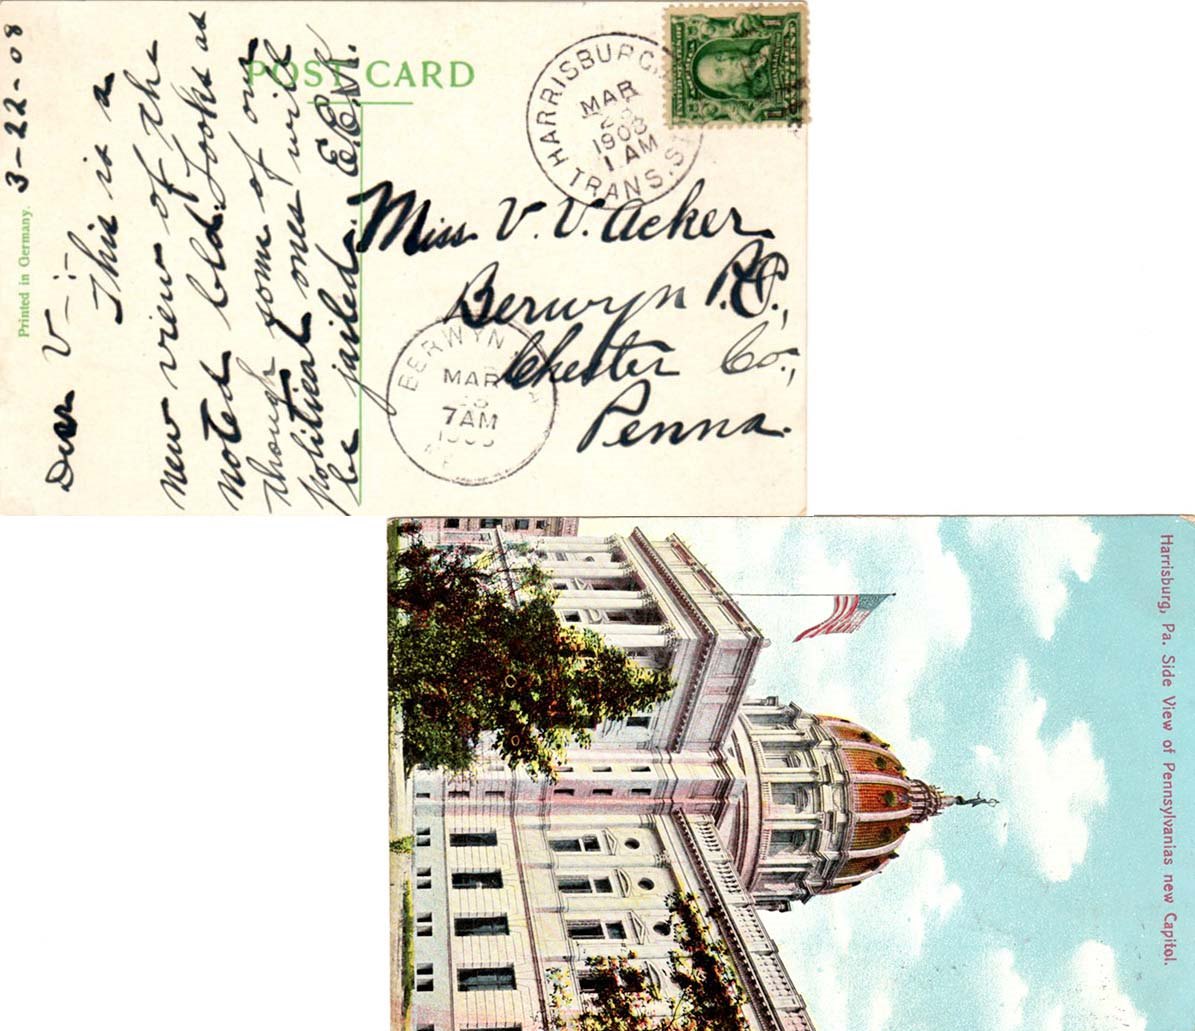 3-22-08
Printed in Germany.
POST CARD
Dear V-:-
This is a
new view of the
noted bld. Looks as
though some of our
political ones will
be jailed. E.E.K.
HARRISBURG,
MAR
1908
1 AM
TRANS.
Miss. V. V. Acker
Berwyn
Chester Co.,
Penna.
BERWYN
MAR
7AM
Harrisburg, Pa. Side View of Pennsylvanias new Capitol.